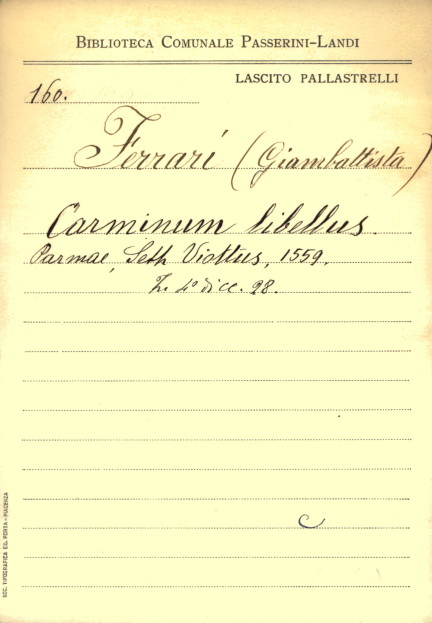 BIBLIOTECA COMUNALE PASSERINI-LANDI
LASCITO PALLASTRELLI
160.
Ferrari (Giambattista)
Carminum libellus.
Parmae, Seth Viottus, 1559.
4º dicc. 98.
SOC. TIPOGRAFICA ED. PORTA - PIACENZA